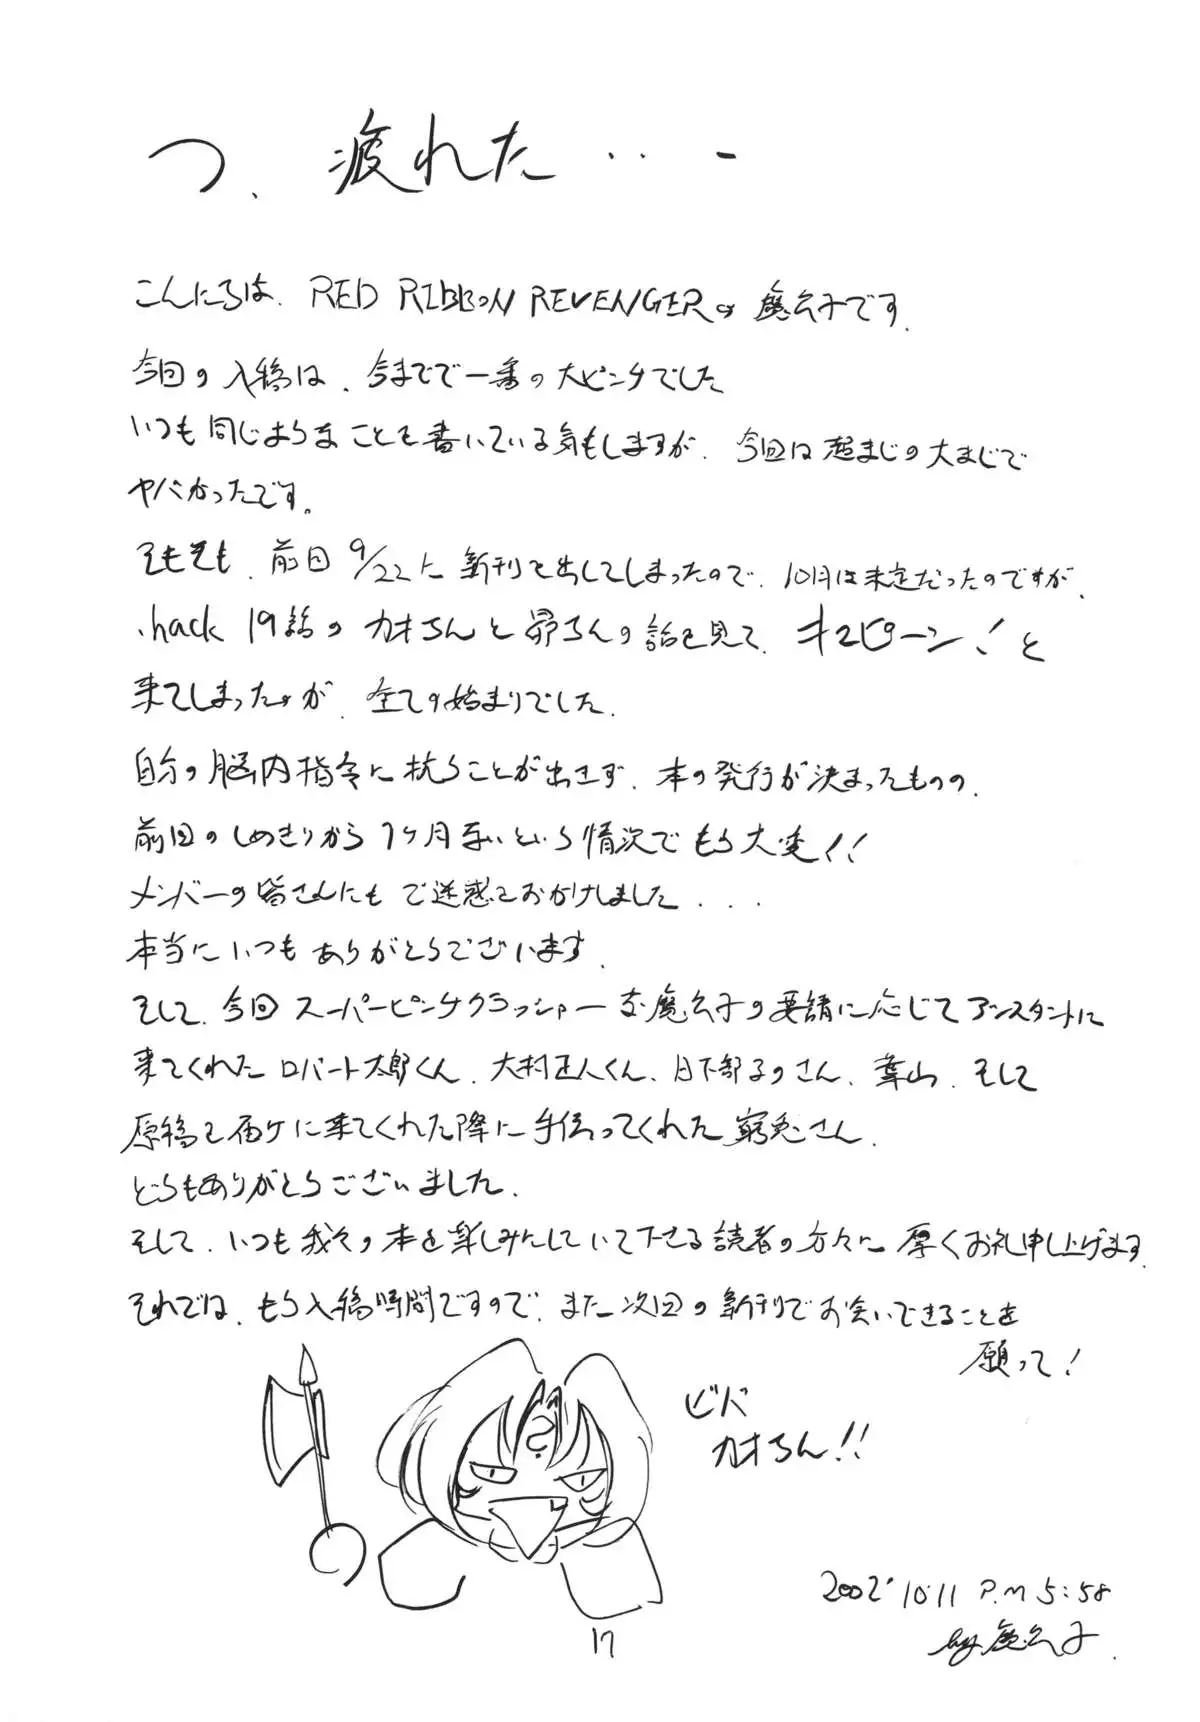 つ、疲れた・・・-
こんにちは、RED RIBBON REVENGERの魔公子です。
今回の入稿は、今までで一番の大ピンチでした
いつも同じようなことを書いている気もしますが、今回は超まじの大まじで
ヤバかったです。
そもそも、前回9/22に新刊を出してしまったので、10月は未定だったのですが、
.hack 19話のカオちんと昴ちんの話を見て、キュピーン!と
来てしまったのが、全ての始まりでした。
自分の脳内指令に抗うことが出きず、本の発行が決まったものの、
前回のしめきりから1ヶ月無いという情況でもう大変!!
メンバーの皆さんにもご迷惑をおかけしました...
本当にいつもありがとうございます。
そして、今回スーパーピンチクラッシャーな魔公子の要請に応じてアシスタントに
来てくれたロバート太郎くん、大村正人くん、日下部子のさん、葉山、そして
原稿を届けに来てくれた際に手伝ってくれた窮兎さん、
どうもありがとうございました。
そして、いつも我々の本を楽しみにしていて下さる読者の方々に厚くお礼申し上げます。
それでは、もう入稿時間ですので、また次回の新刊でお会いできることを
願って!
ビバ
カオちん!!
2002'10.11 P.M 5:58
by 魔公子.
17